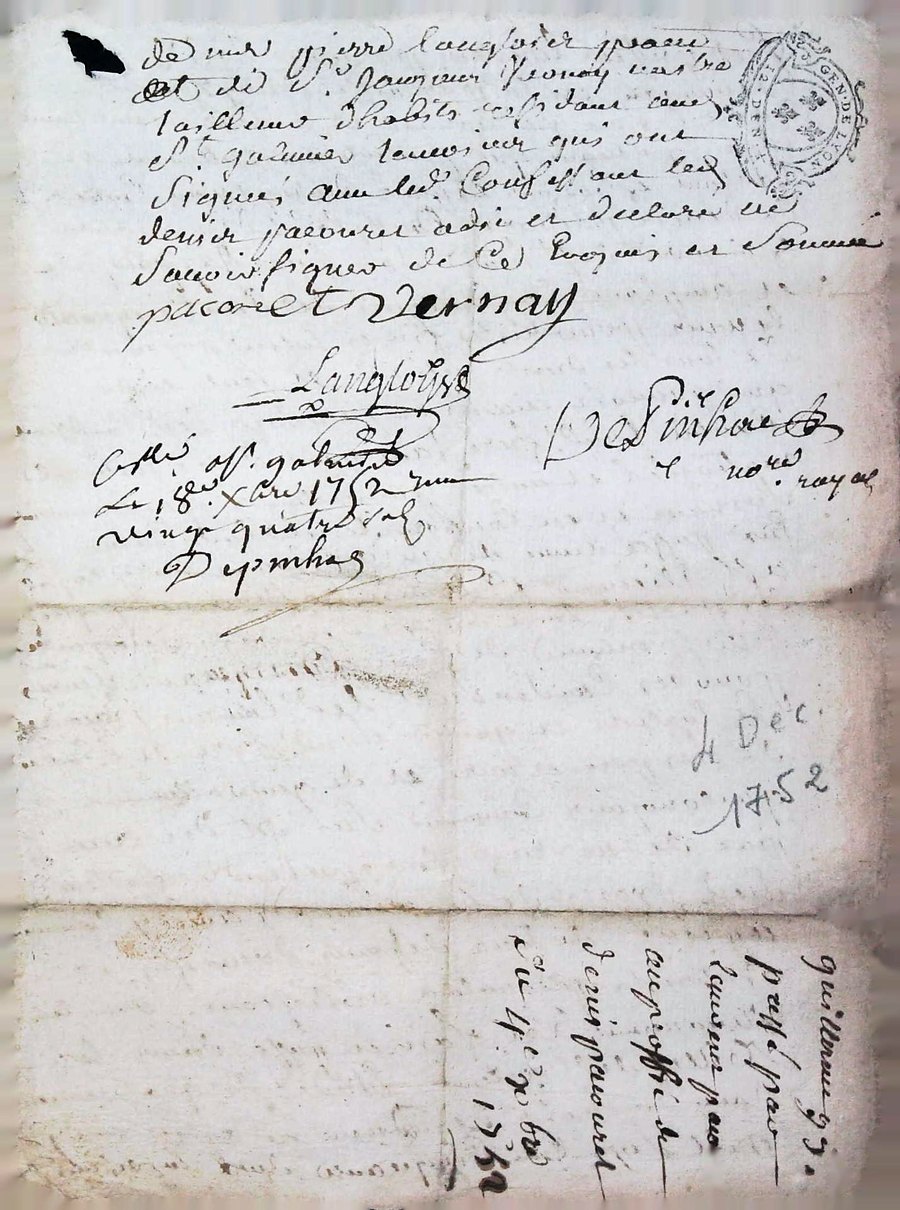 de me pierre Langlois prati
et de Sr. Jacques Vernay maitre
tailleur dhabits residant aud
St. galmier temoins qui ont
Signés avec led. Confessant led
denis pacouret a dit et declaré ne
Scavoir signer de Ce Enquis et Sommé
pacoret Vernay
Langlois
DePinhac
nore. royal
Collé a St. galmier
Le 18e. Xbre 1752 Reçu
vingt quatre sols
Depinhac
GEN·DE LYON
4 Déc.
1752
quittance 93.
passé par
Laurent pac
au proffit de
denis pacouret
du 4e Xbre
1752